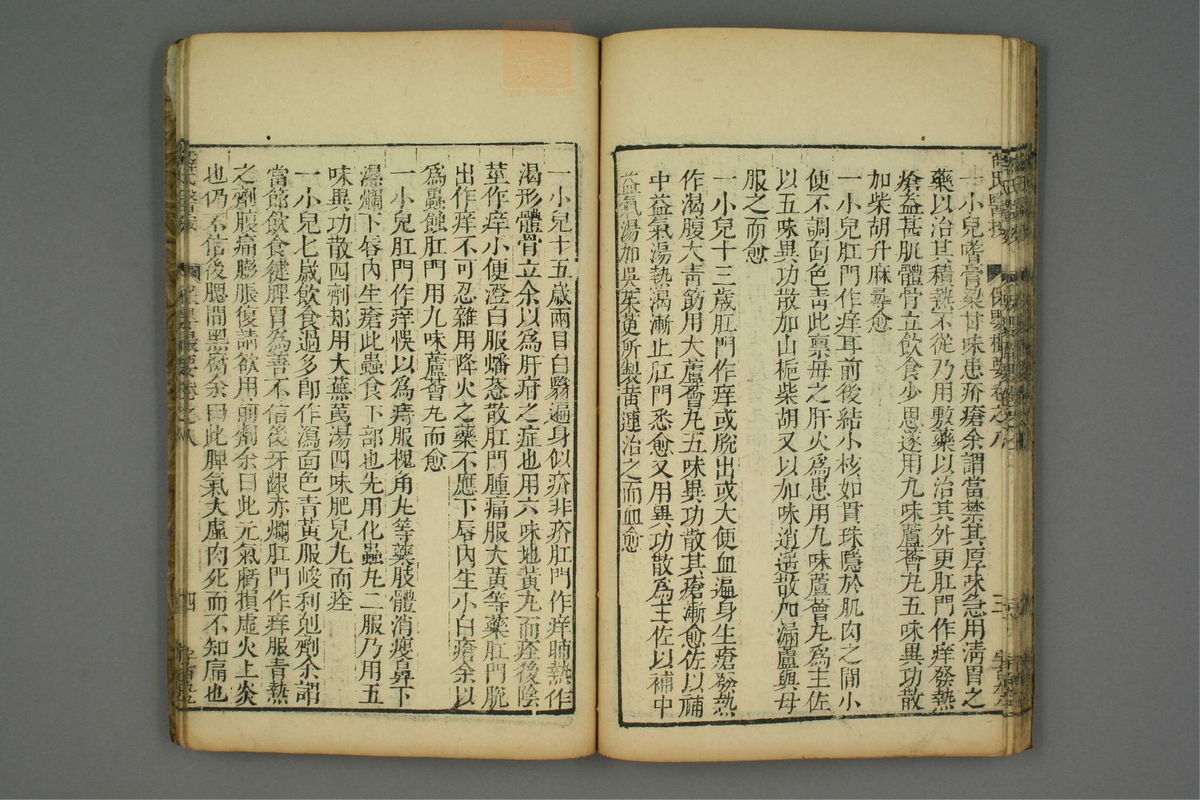 一小兒嗜膏粱甘味患疥瘡余謂當禁其厚味急用清胃之
藥以治其積熱不從乃用敷藥以治其外更肛門作痒發熱
瘡益甚肌體骨立飲食少思遂用九味蘆薈丸五味異功散
加柴胡升麻尋愈
一小兒肛門作痒耳前後結小核如貫珠隱於肌肉之間小
便不調面色青此稟母之肝火為患用九味蘆薈丸為主佐
以五味異功散加山梔柴胡又以加味逍遥散加漏蘆與母
服之而愈
一小兒十三歲肛門作痒或脫出或大便血遍身生瘡發熱
作渴腹大青筋用大蘆薈丸五味異功散其瘡漸愈佐以補
中益氣湯熱渴漸止肛門悉愈又用異功散為主佐以補中
益氣湯加吳茱萸所製黃連治之而血愈
一小兒十五歲兩目白翳遍身似疥非疥肛門作痒晡熱作
渴形體骨立余以為肝疳之症也用六味地黃丸而痊後陰
莖作痒小便澄白服蟠葱散肛門腫痛服大黃等藥肛門脫
出作痒不可忍雜用降火之藥不應下唇內生小白瘡余以
為蟲蝕肛門用九味蘆薈丸而愈
一小兒肛門作痒悞以為痔服槐角丸等藥肢體消瘦鼻下
濕爛下唇內生瘡此蟲食下部也先用化蟲丸二服乃用五
味異功散四劑却用大蕪荑湯四味肥兒丸而痊
一小兒七歲飲食過多即作瀉面色青黃服峻利剋劑余謂
當節飲食健脾胃為善不信後牙齦赤爛肛門作痒服青熱
之劑腹痛膨脹復請欲用前劑余曰此元氣虧損虛火上炎
也仍不信後腮間黑腐余曰此脾氣大虛肉死而不知痛也
薛氏醫按
保嬰撮要卷之八
三
四